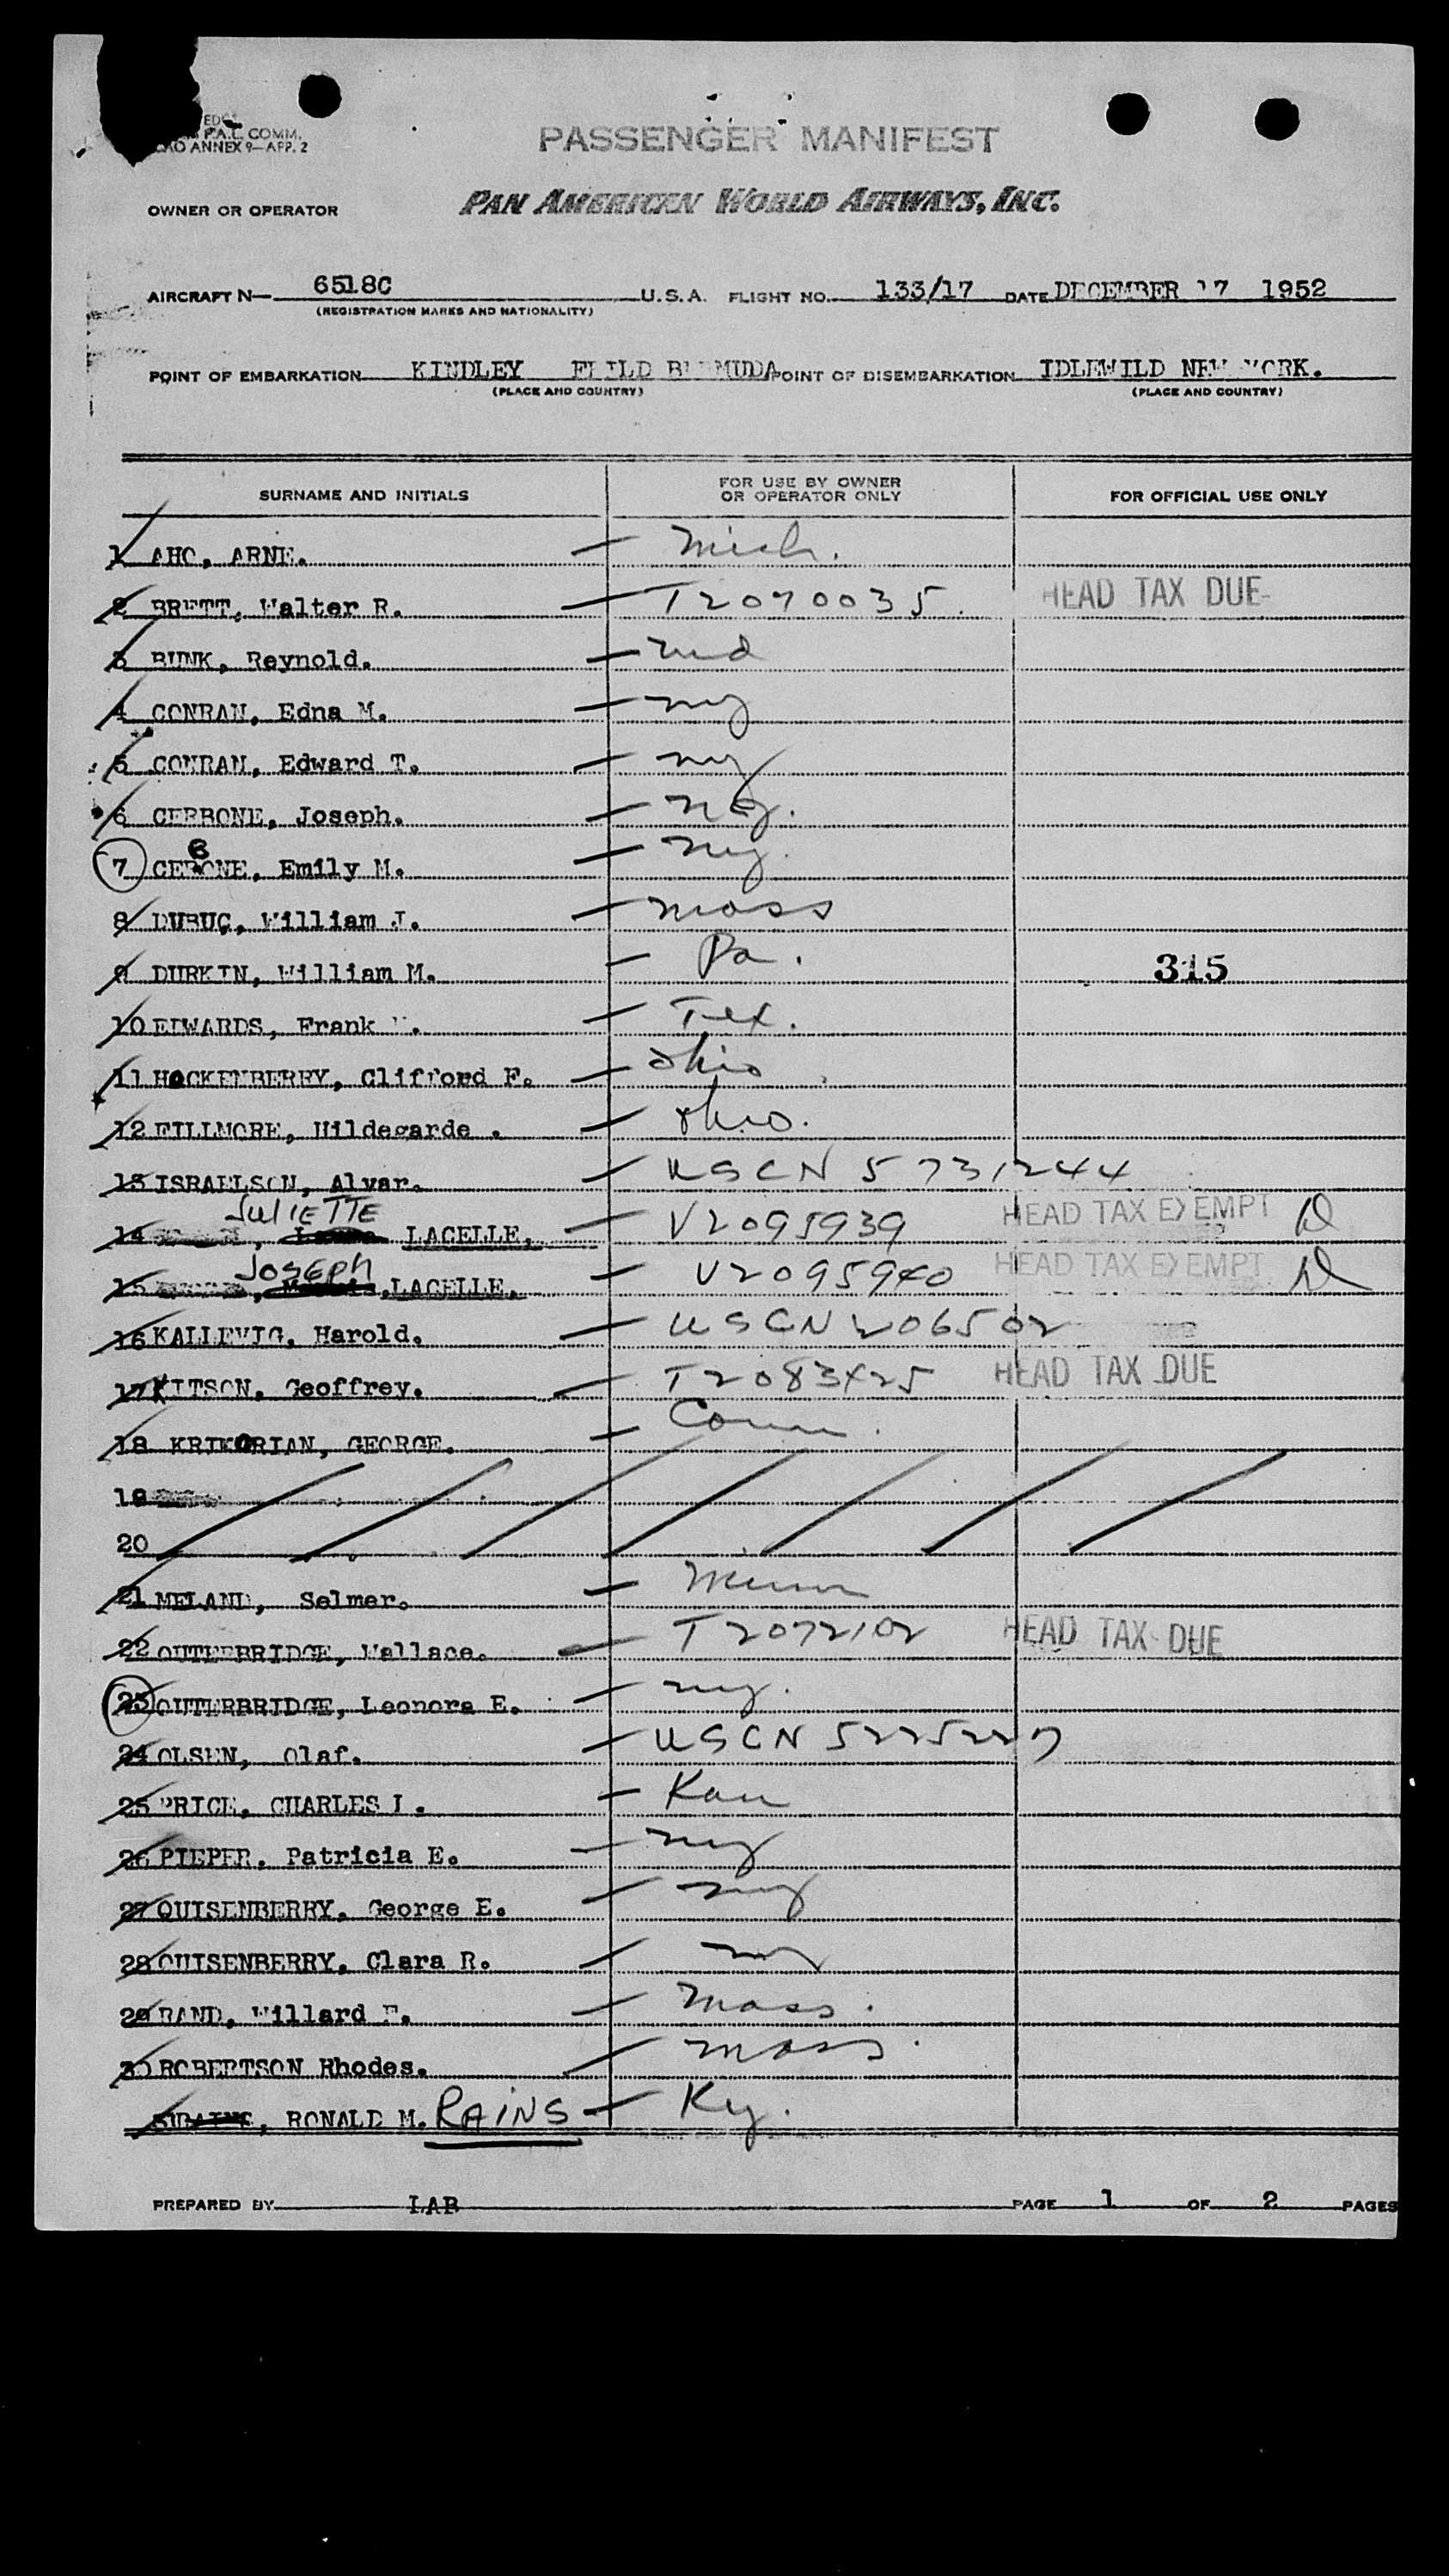 P.A.L. COMM.
ANNEX 9—APP. 2
PASSENGER MANIFEST
OWNER OR OPERATOR
PAN AMERICAN WORLD AIRWAYS, INC.
AIRCRAFT N— 6518C U.S.A. FLIGHT NO. 133/17 DATE DECEMBER 17 1952
(REGISTRATION MARKS AND NATIONALITY)
POINT OF EMBARKATION KINDLEY POINT OF DISEMBARKATION IDLEWILD NEW YORK.
(PLACE AND COUNTRY) (PLACE AND COUNTRY)
SURNAME AND INITIALS FOR USE BY OWNER OR OPERATOR ONLY FOR OFFICIAL USE ONLY
1 AHO, ARNE. — Mich.
2 BRETT, Walter R. — T2070035. HEAD TAX DUE
3 BUNK, Reynold. — md
4 CONRAN, Edna M. — ny
5 CONRAN, Edward T. — ny
6 CERBONE, Joseph. — ny.
7 CERBONE, Emily M. — ny.
8 DUBUC, William J. — mass
9 DURKIN, William M. — Pa. 315
10 EDWARDS, Frank — Tex.
11 HOCKENBERRY, Clifford F. — Ohio
12 FILLMORE, Hildegarde . — Ohio.
13 ISRAELSON, Alvar. — USCN 5731244
14 JULIETTE LACELLE, — V2095939 HEAD TAX EXEMPT
15 JOSEPH LACELLE. — V2095940 HEAD TAX EXEMPT
16 KALLEVIG, Harold. — USCN 206502
17 KITSON, Geoffrey. — T2083425 HEAD TAX DUE
18 KRIKORIAN, GEORGE. — Conn.
19
20
21 MELAND, Selmer. — Minn
22 OUTERBRIDGE, Wallace. — T2072102 HEAD TAX DUE
23 OUTERBRIDGE, Leonora E. — ny.
24 OLSEN, Olaf. — USCN 5225227
25 PRICE, CHARLES I. — Kan
26 PIEPER, Patricia E. — ny
27 QUISENBERRY, George E. — ny
28 QUISENBERRY, Clara R. — ny
29 RAND, Willard F. — Mass.
30 ROBERTSON Rhodes. — mass.
RONALD M. RAINS — Ky.
PREPARED BY LAB PAGE 1 OF 2 PAGES